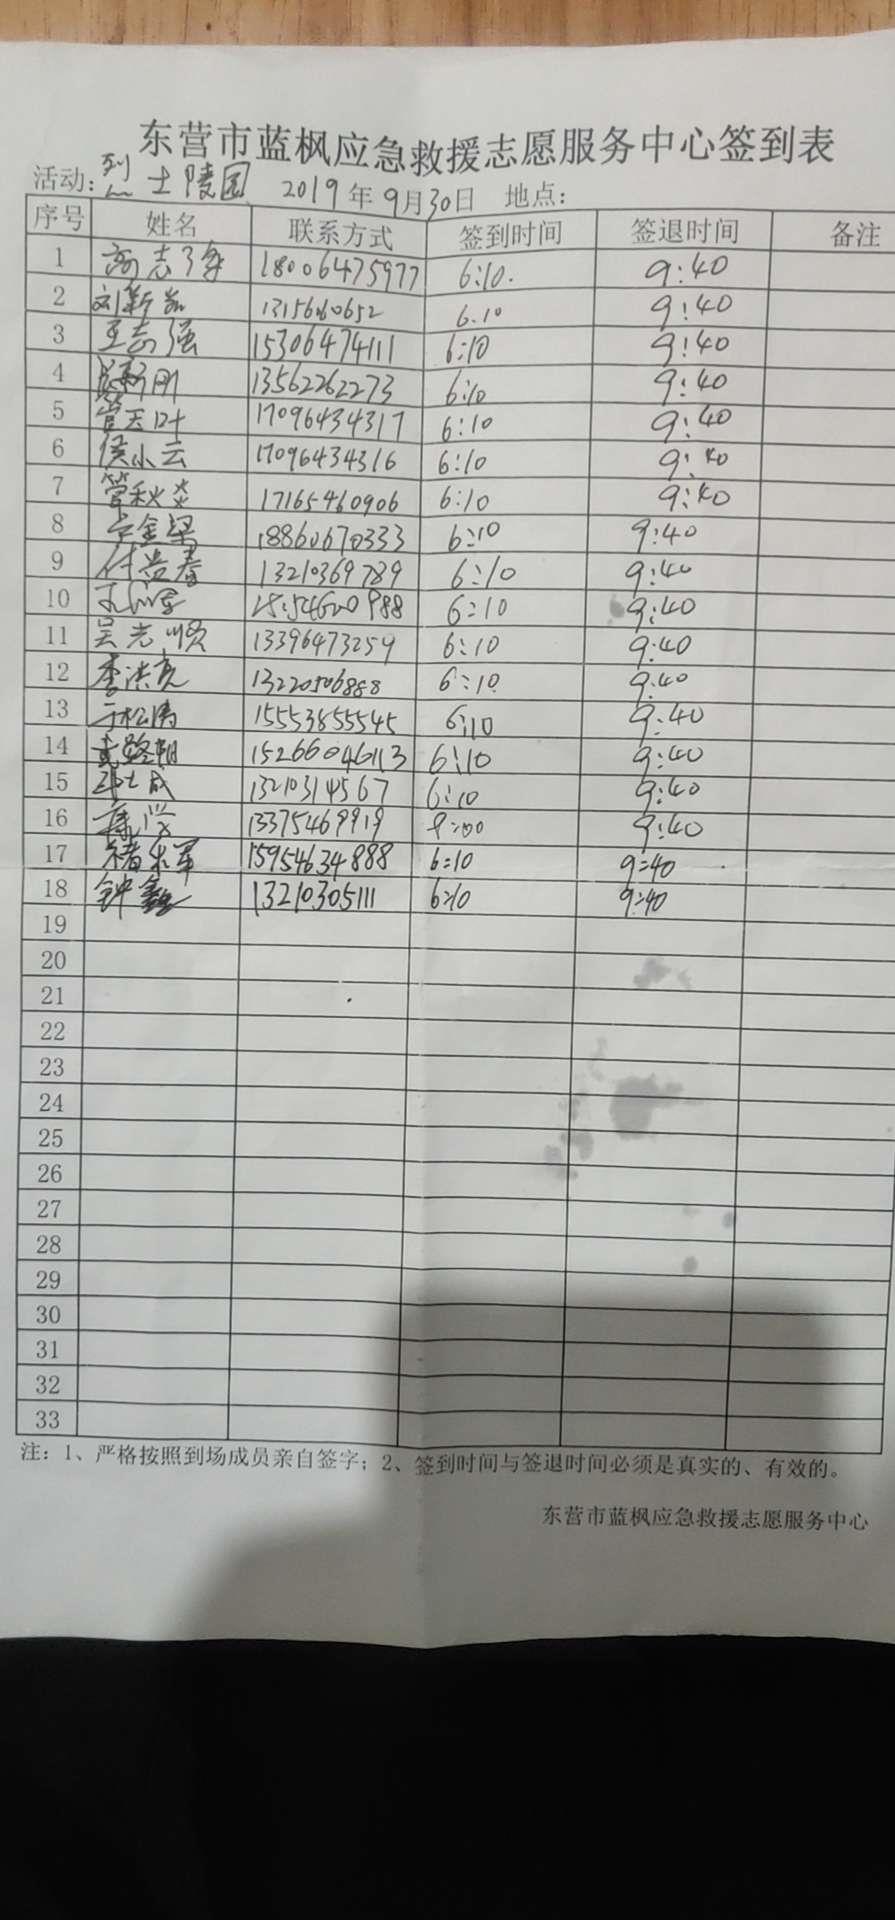 东营市蓝枫应急救援志愿服务中心签到表
活动: 烈士陵园 2019年9月30日 地点:
序号 姓名 联系方式 签到时间 签退时间 备注
1 志 18006475977 6:10. 9:40
2 刘新 1315660652 6.10 9:40
3 王志强 15306474111 6:10 9:40
4 刚 13562262273 6:10 9:40
5 管玉叶 17096434317 6:10 9:40
6 侯小云 17096434316 6:10 9:40
7 管秋炎 17165460906 6:10 9:40
8 金梁 18860670333 6:10 9:40
9 付岩春 13210369789 6:10 9:40
10 6:10 9:40
11 吴光顺 13396473259 6:10 9:40
12 李洪亮 13220506888 6:10 9:40
13 于松涛 15553855545 6:10 9:40
14 路朝 15266046113 6:10 9:40
15 成 13210314567 6:10 9:40
16 康 13375469919 9:40
17 褚 军 15954634888 6:10 9:40
18 钟鑫 13210305111 6:10 9:40
19
20
21
22
23
24
25
26
27
28
29
30
31
32
33
注: 1、严格按照到场成员亲自签字; 2、签到时间与签退时间必须是真实的、有效的。
东营市蓝枫应急救援志愿服务中心